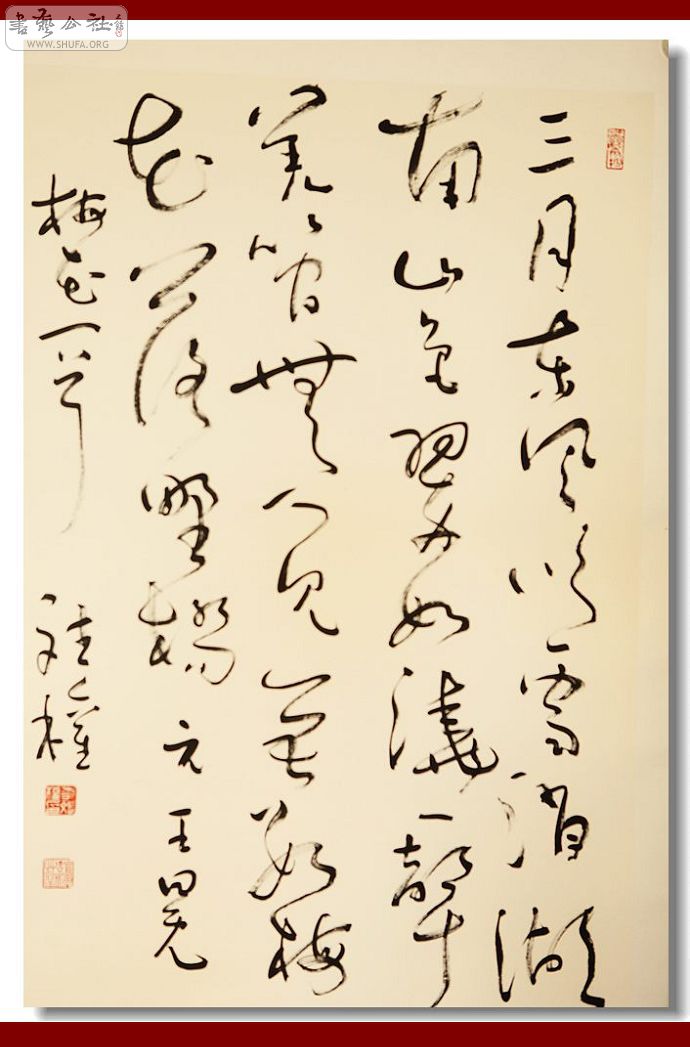 書藝公社
WWW.SHUFA.ORG
三月東風吹雪消湖
南山色翠如澆一聲
羌管無人見無數梅
花落野橋 元 王冕
梅花一首